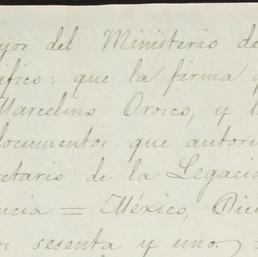 yor del Ministerio de
ifico: que la firma q
Marcelino Orosco, y l
documentos que autori
retario de la Legació
ncia = México, Dici
os sesenta y uno. =